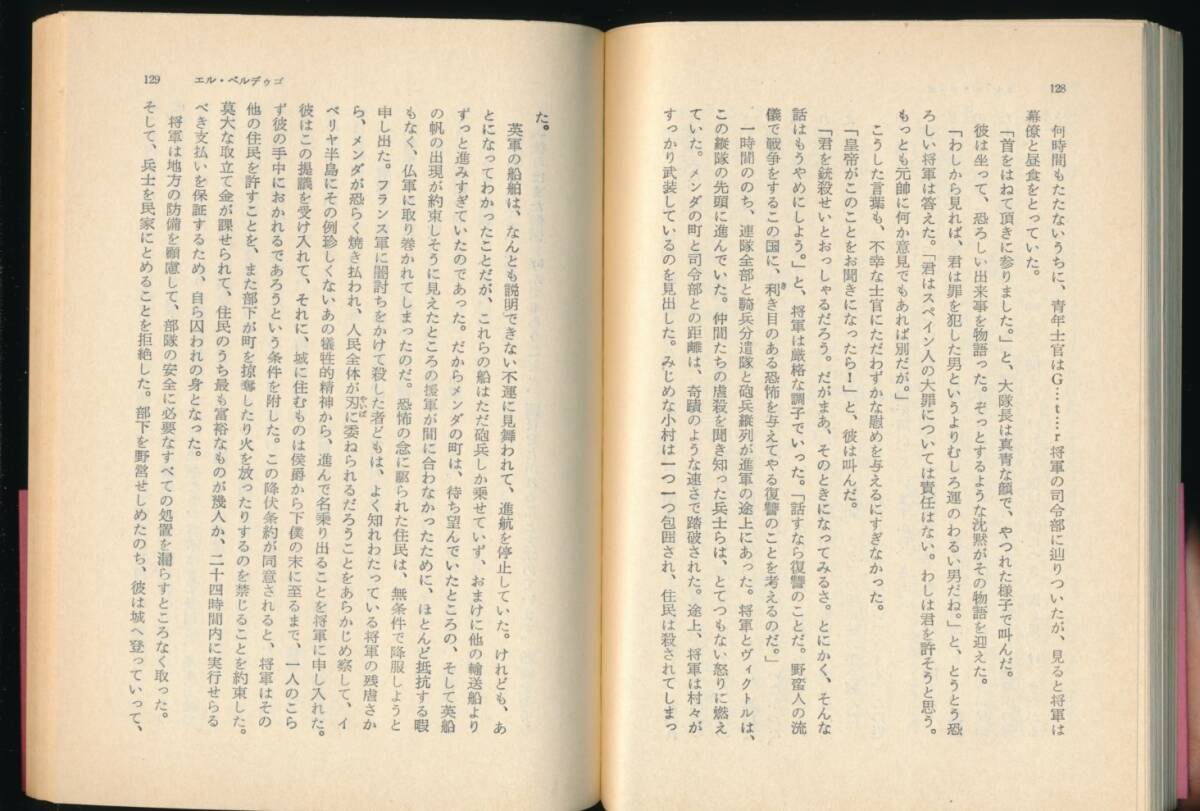 128
何時間もたたないうちに、青年士官はG…t…r将軍の司令部に辿りついたが、見ると将軍は
幕僚と昼食をとっていた。
「首をはねて頂きに参りました。」と、大隊長は真青な顔で、やつれた様子で叫んだ。
彼は坐って、恐ろしい出来事を物語った。ぞっとするような沈黙がその物語を迎えた。
「わしから見れば、君は罪を犯した男というよりむしろ運のわるい男だね。」と、とうとう恐
ろしい将軍は答えた。「君はスペイン人の大罪については責任はない。わしは君を許そうと思う。
もっとも元帥に何か意見でもあれば別だが。」
こうした言葉も、不幸な士官にただわずかな慰めを与えるにすぎなかった。
「皇帝がこのことをお聞きになったら!」と、彼は叫んだ。
「君を銃殺せいとおっしゃるだろう。だがまあ、そのときになってみるさ。とにかく、そんな
話はもうやめにしよう。」と、将軍は厳格な調子でいった。「話すなら復讐のことだ。野蛮人の流
儀で戦争をするこの国に、利き目のある恐怖を与えてやる復讐のことを考えるのだ。」
一時間ののち、連隊全部と騎兵分遣隊と砲兵縦列が進軍の途上にあった。将軍とヴィクトルは、
この縦隊の先頭に進んでいた。仲間たちの虐殺を聞き知った兵士らは、とてつもない怒りに燃え
ていた。メンダの町と司令部との距離は、奇蹟のような速さで踏破された。途上、将軍は村々が
すっかり武装しているのを見出した。みじめな小村は一つ一つ包囲され、住民は殺されてしまっ
129
エル・ベルデゥゴ
た。
英軍の船舶は、なんとも説明できない不運に見舞われて、進航を停止していた。けれども、あ
とになってわかったことだが、これらの船はただ砲兵しか乗せていず、おまけに他の輸送船より
ずっと進みすぎていたのであった。だからメンダの町は、待ち望んでいたところの、そして英船
の帆の出現が約束しそうに見えたところの援軍が間に合わなかったために、ほとんど抵抗する暇
もなく、仏軍に取り巻かれてしまったのだ。恐怖の念に駆られた住民は、無条件で降服しようと
申し出た。フランス軍に闇討ちをかけて殺した者どもは、よく知れわたっている将軍の残虐さか
ら、メンダが恐らく焼き払われ、人民全体が刃に委ねられるだろうことをあらかじめ察して、イ
ベリヤ半島にその例珍しくないあの犠牲的精神から、進んで名乗り出ることを将軍に申し入れた。
彼はこの提議を受け入れて、それに、城に住むものは侯爵から下僕の末に至るまで、一人のこら
ず彼の手中におかれるであろうという条件を附した。この降伏条約が同意されると、将軍はその
他の住民を許すことを、また部下が町を掠奪したり火を放ったりするのを禁じることを約束した。
莫大な取立て金が課せられて、住民のうち最も富裕なものが幾人か、二十四時間内に実行せらる
べき支払いを保証するため、自ら囚われの身となった。
将軍は地方の防備を顧慮して、部隊の安全に必要なすべての処置を漏らすところなく取った。
そして、兵士を民家にとめることを拒絶した。部下を野営せしめたのち、彼は城へ登っていって、